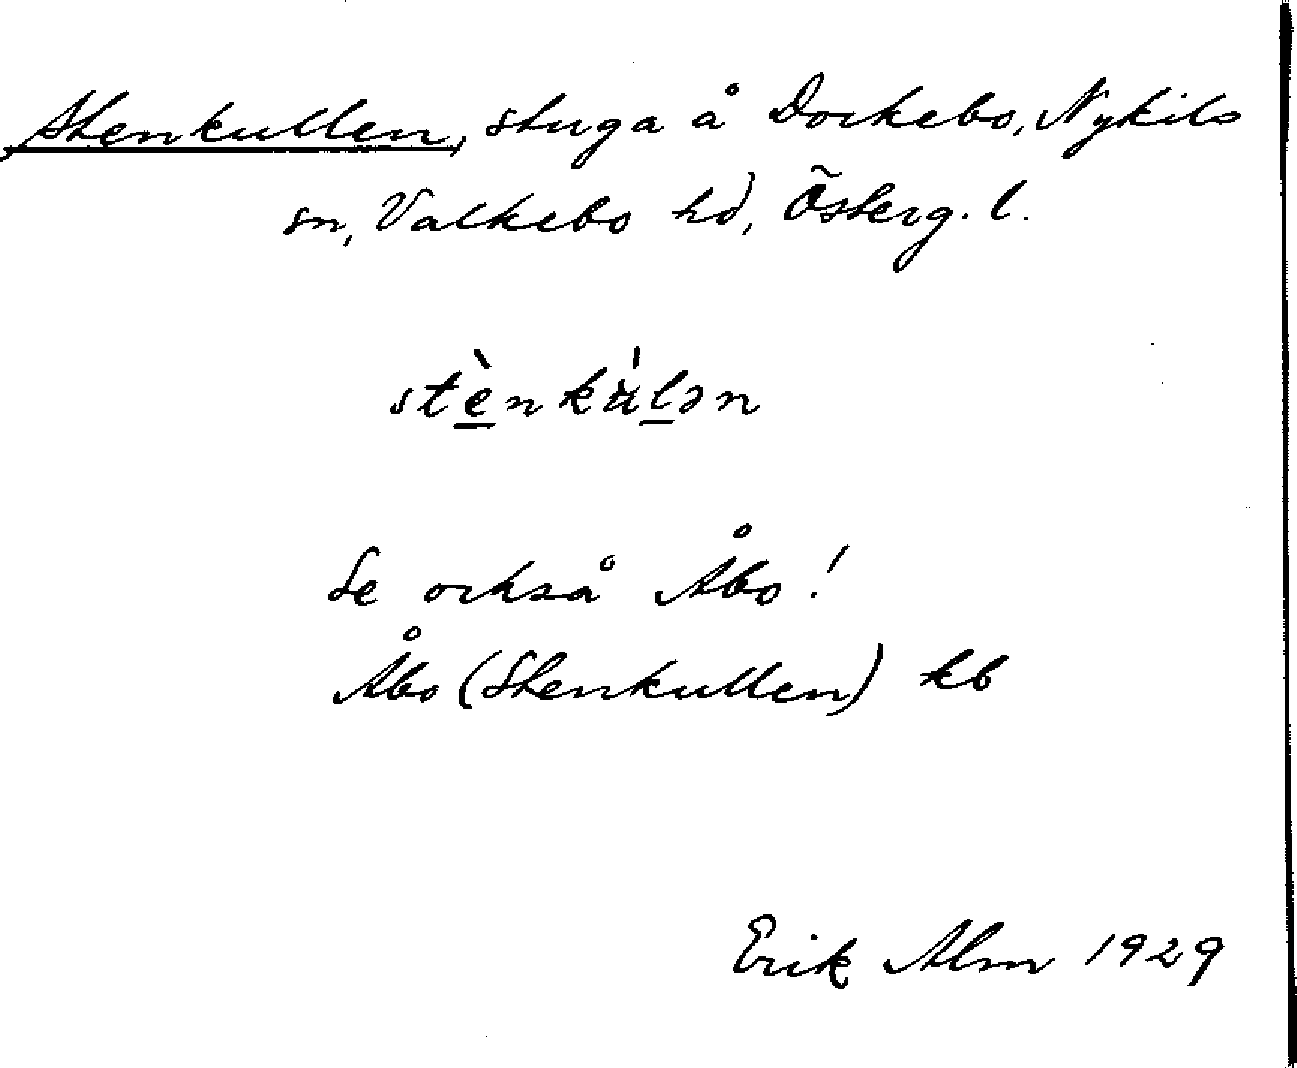 Stenkullen, stuga å Dockebo, Nykils
sn, Valkebo hd, Österg. l.
stènku̇lən
Se också Åbo!
Åbo (Stenkullen) kb
Erik Alm 1929